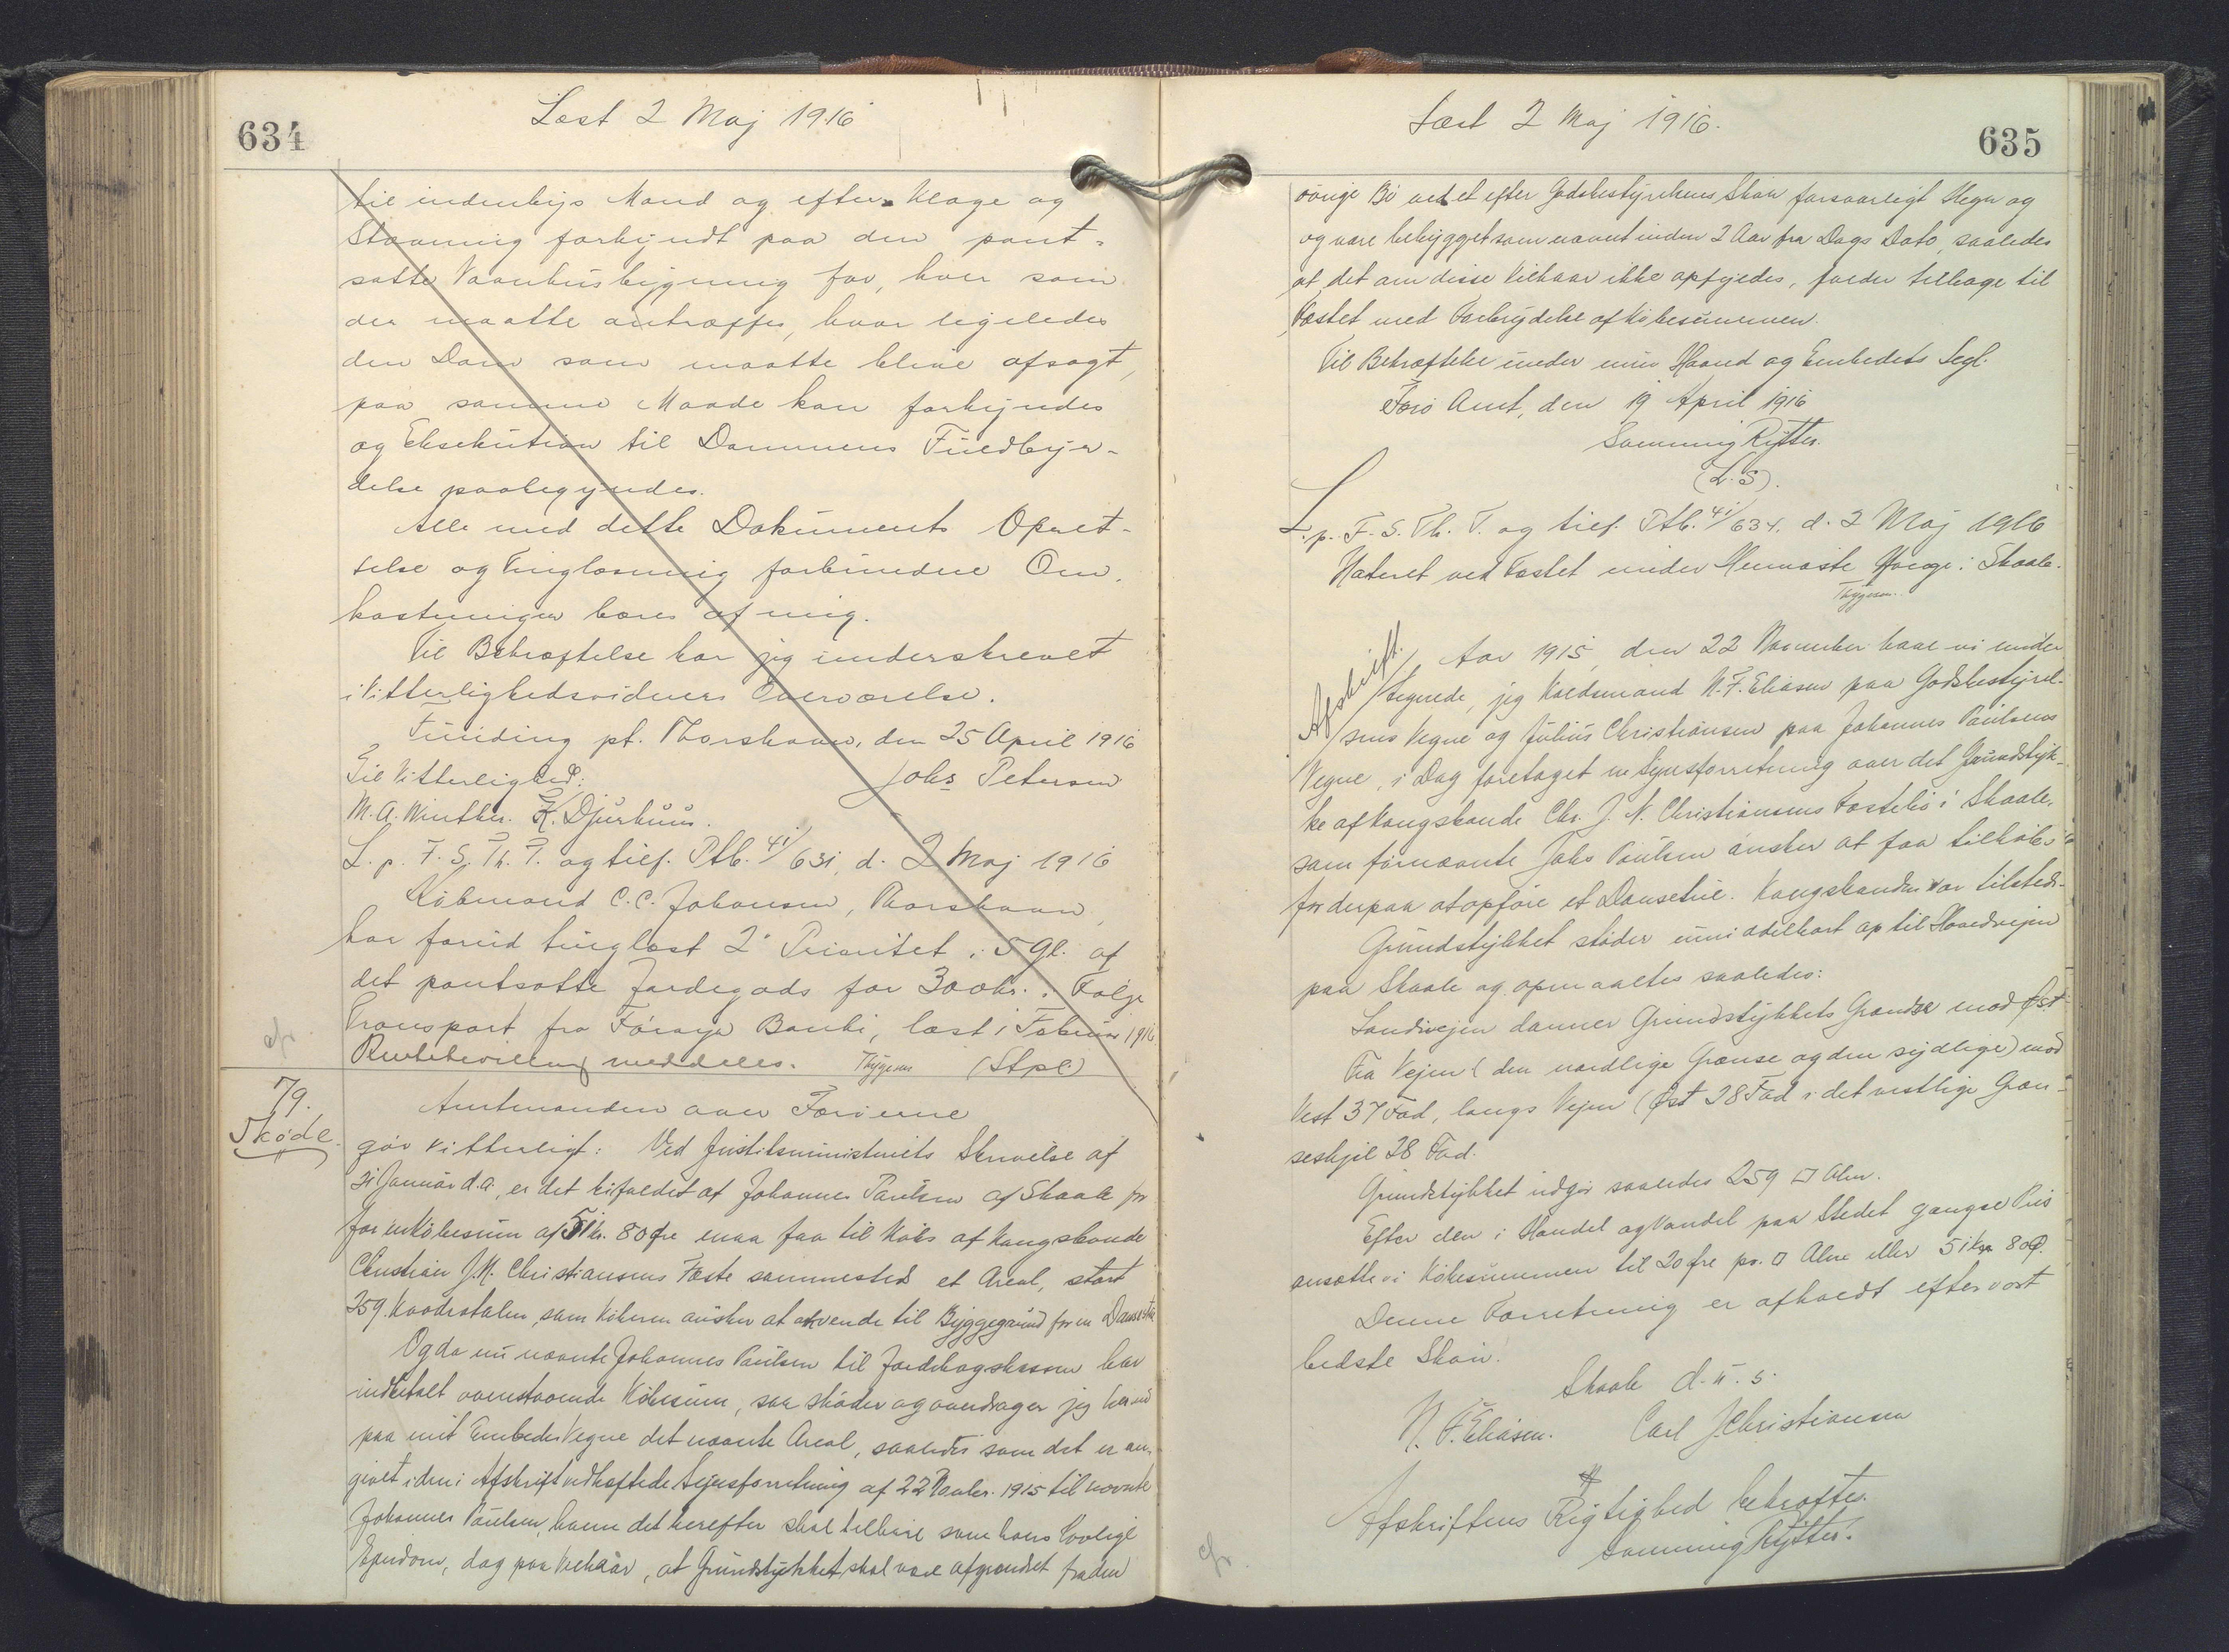 634
Læst 2 Maj 1916
til indenbys Mand og efter Klage og
Stævning forkyndt paa den pant-
satte Vaanhusbygning for, hver som
der maatte antræffes, hvor ligeledes
den Dom som maatte blive afsagt,
paa samme Maade kan forkyndes
og Eksekution til Dommens Fuldbyr-
delse paabegyndes.
Alle med dette Dokuments Opret-
telse og Tinglæsning forbundne Om-
kostninger bæres af mig.
Til Bekræftelse har jeg underskrevet
i Vitterlighedsvidners Overværelse.
Funding pt. Thorshavn, den 25 April 1916
Til Vitterlighed: Johs Petersen
M. A. Winther. K. Djurhuus.
L. p. F. S. Th. T. og tilf. Ptb. 41/631, d. 2 Maj 1916
Købmand C. C. Johansen, Thorshavn,
har forud tinglæst 2' Prioritet i 5 Gl. af
det pantsatte Jordegods for 300 kr. i Følge
Transport fra Færøya Banki, læst i Februar 1916
meddeles. Thygesen (Stpl)
79.
Skøde.
Amtmanden over Færøerne
gør vitterligt: Ved Justitsministeriets Skrivelse af
31 Januar d.a., er det bifaldet at Johannes Paulsen af Skaale for
for en Købesum af 51 kr. 80 Øre maa faa til Købs af Kongsbonde
Christian J. N. Christiansens Fæste sammesteds et Areal, stort
259 Kvadratalen, som Køberen ønsker at anvende til Byggegrund for en Dansestue
Og da nu nævnte Johannes Paulsen til Jordebogskassen har
indbetalt ovenstaaende Købesum, saa skøder og overdrager jeg herved
paa mit Embedes Vegne det nævnte Areal, saaledes som det er an-
givet i den i Afskrift vedhæftede Synsforretning af 22 Novbr. 1915 til nævnte
Johannes Paulsen, hvem det herefter skal tilhøre som hans lovlige
Ejendom, dog paa Vilkaar, at Grundstykket skal være afgrændset fra den
635
Læst 2 Maj 1916.
øvrige Bø ved et efter Godsbestyrelsens Skøn forsvarligt Hegn og
og være bebygget som nævnt inden 2 Aar fra Dags Dato, saaledes
at det om disse Vilkaar ikke opfyldes, falder tilbage til
Fæstet med Forbrydelse af Købesummen.
Til Bekræftelse under min Haand og Embedets Segl.
Færø Amt, den 19 April 1916
Svenning Rytter.
(L. S).
L. p. F. S. Th. T. og tilf. Ptb. 41/634. d. 2 Maj 1916
Noteret ved Fæstet under i Skaale.
Thygesen.
Afskrift.
Aar 1915, den 22 November have vi under-
tegnede, jeg Voldsmand N. F. Eliasen paa Godsbestyrel-
sens Vegne og Julius Christiansen paa Johannes Paulsens
Vegne, i Dag foretaget en Synsforretning over det Grundstyk-
ke af Kongsbonde Chr. J. N. Christiansens Fæstebø i Skaale,
som førnævnte Johs Paulsen ønsker at faa tilkøbs
for derpaa at opføre et Dansehus. Kongsbonden var tilstede.
Grundstykket støder umiddelbart op til Hovedvejen
paa Skaale og opmaaltes saaledes:
Landvejen danner Grundstykkets Grændse mod Øst
Fra Vejen (den nordlige Grænse og den sydlige) mod
Vest 37 Fod, langs Vejen (Øst 28 Fod i det vestlige Græn-
seskjel 28 Fod.
Grundstykket udgør saaledes 259 □ Alen.
Efter den i Handel og Vandel paa Stedet gængse Pris
ansætte vi Købesummen til 20 Øre pr. □ Alen eller 51 Kr. 80 Ø.
Denne Forretning er afholdt efter vort
bedste Skøn.
Skaale d. u. s.
N. F. Eliasen. Carl J Christiansen
Afskriftens Rigtighed bekræftes.
Svenning Rytter.